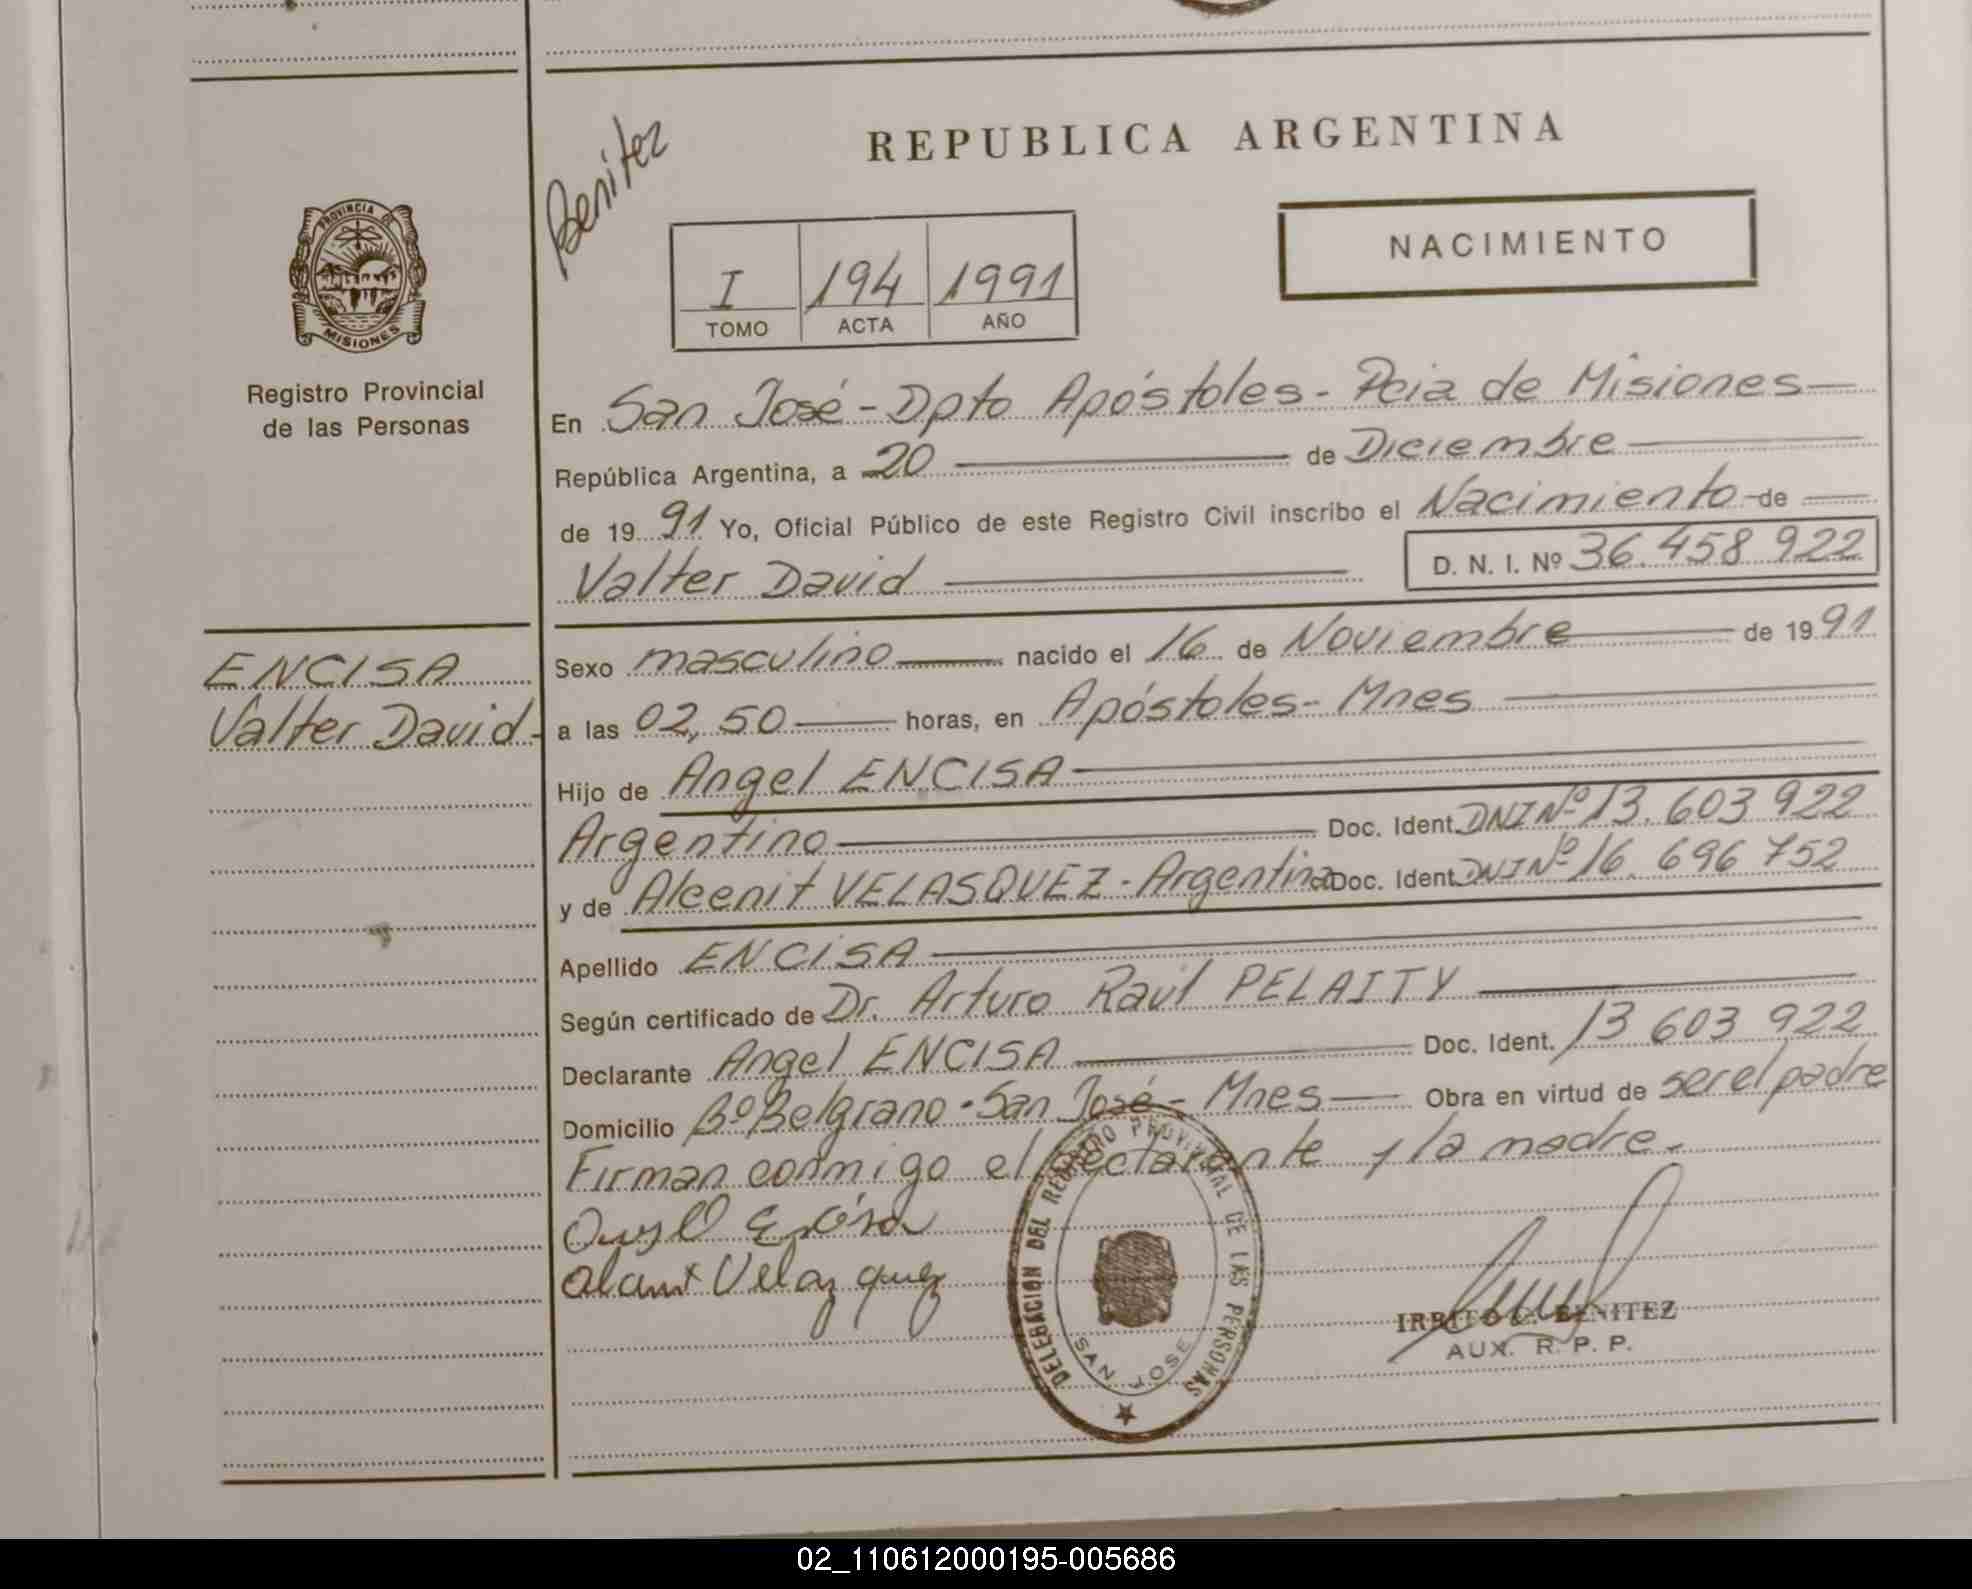 REPUBLICA ARGENTINA
Benitez
NACIMIENTO
I 194 1991
TOMO ACTA AÑO
PROVINCIA DE
MISIONES
Registro Provincial
de las Personas
En San José - Dpto Apóstoles - Pcia de Misiones
República Argentina, a 20 de Diciembre
de 19 91 Yo, Oficial Público de este Registro Civil inscribo el Nacimiento de
Valter David D. N. I. Nº 36.458 922
ENCISA
Valter David -
Sexo masculino nacido el 16 de Noviembre de 19 91
a las 02,50 horas, en Apóstoles - Mnes
Hijo de Angel ENCISA
Argentino Doc. Ident. DNI Nº 13.603 922
y de Alcenit VELASQUEZ - Argentina Doc. Ident. DNI Nº 16.696 752
Apellido ENCISA
Según certificado de Dr. Arturo Raúl PELAITY
Declarante Angel ENCISA Doc. Ident. 13 603 922
Domicilio Bº Belgrano - San José - Mnes Obra en virtud de ser el padre
Firman conmigo el declarante y la madre.
Velazquez
DELEGACION DEL REGISTRO PROVINCIAL DE LAS PERSONAS
SAN JOSE
IRRITO C. BENITEZ
AUX. R. P. P.
02_110612000195-005686